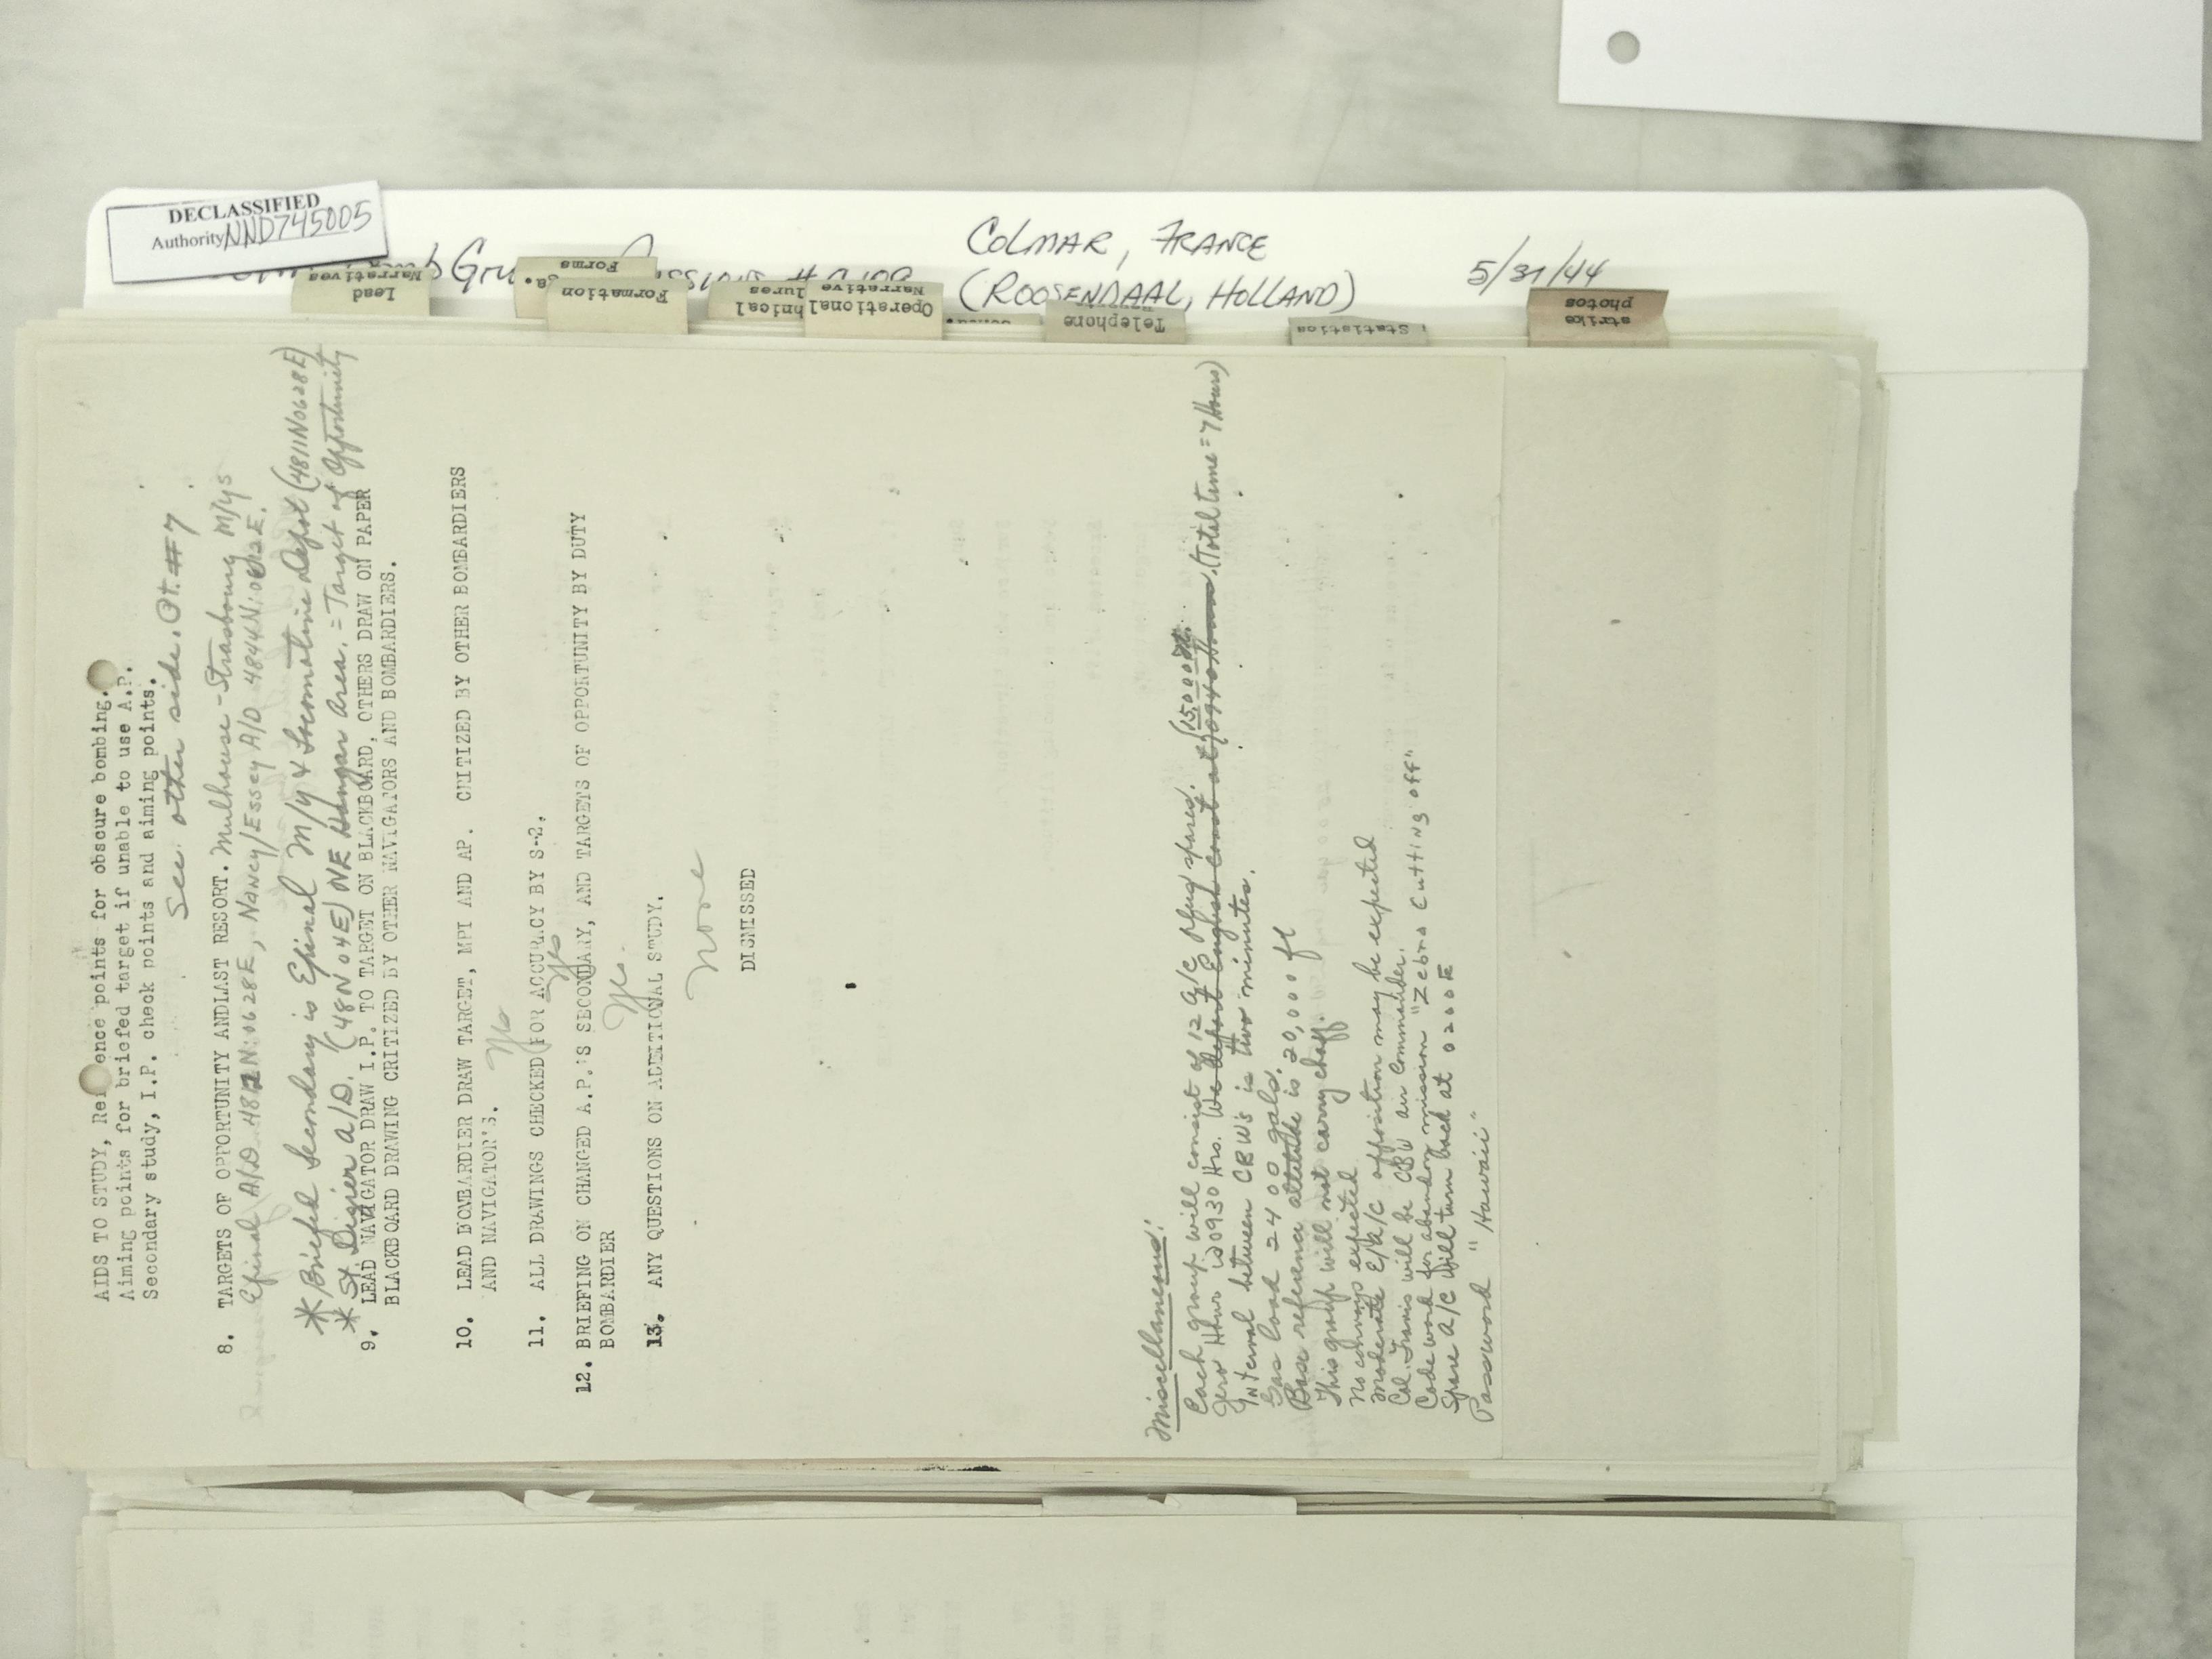 DECLASSIFIED
Authority NND745005
COLMAR, FRANCE
(ROOSENDAAL, HOLLAND)
5/31/44
Lead
Narratives
Forms
Formation
Operational
Narrative
Telephone
Statistics
strike
photos
AIDS TO STUDY, Reference points for obscure bombing.
Aiming points for briefed target if unable to use A.P.
Secondary study, I.P. check points and aiming points.
See other side. Pt. #7
8. TARGETS OF OPPORTUNITY ANDLAST RESORT. Mulhouse - Strasbourg M/ys
Epinal A/D 4812N:0628E, Nancy/Essey A/D 4844N:0612E.
* Briefed Secondary is Epinal M/y & Locomotive Depot (4811N0628E)
* St. Dizier A/D. (48N04E) NE Hangar Area. = Target of Opportunity
9. LEAD NAVIGATOR DRAW I.P. TO TARGET ON BLACKBOARD, OTHERS DRAW ON PAPER
BLACKBOARD DRAWING CRITIZED BY OTHER NAVIGATORS AND BOMBARDIERS.
10. LEAD BOMBARDIER DRAW TARGET, MPI AND AP. CRITIZED BY OTHER BOMBARDIERS
AND NAVIGATOR'S. Yes
11. ALL DRAWINGS CHECKED FOR ACCURACY BY S-2.
Yes
12. BRIEFING ON CHANGED A.P.'S SECONDARY, AND TARGETS OF OPPORTUNITY BY DUTY
BOMBARDIER Yes.
13. ANY QUESTIONS ON ADDITIONAL STUDY.
None
DISMISSED
Miscellaneous:
Each group will consist of 12 A/C plus spares.
Zero Hour is 0930 Hrs. We depart English Coast at 0940 Hours. (15,000 ft. (Total time = 7 Hours)
Interval between CBW's is two minutes.
Gas load 2400 gals.
Base reference altitude is 20,000 ft
This group will not carry chaff.
No convoys expected
Moderate E/A/C opposition may be expected
Col. Travis will be CBW air Commander.
Code word for abandon mission "Zebra Cutting off"
Spare A/C will turn back at 0200E
Password "Hawaii"